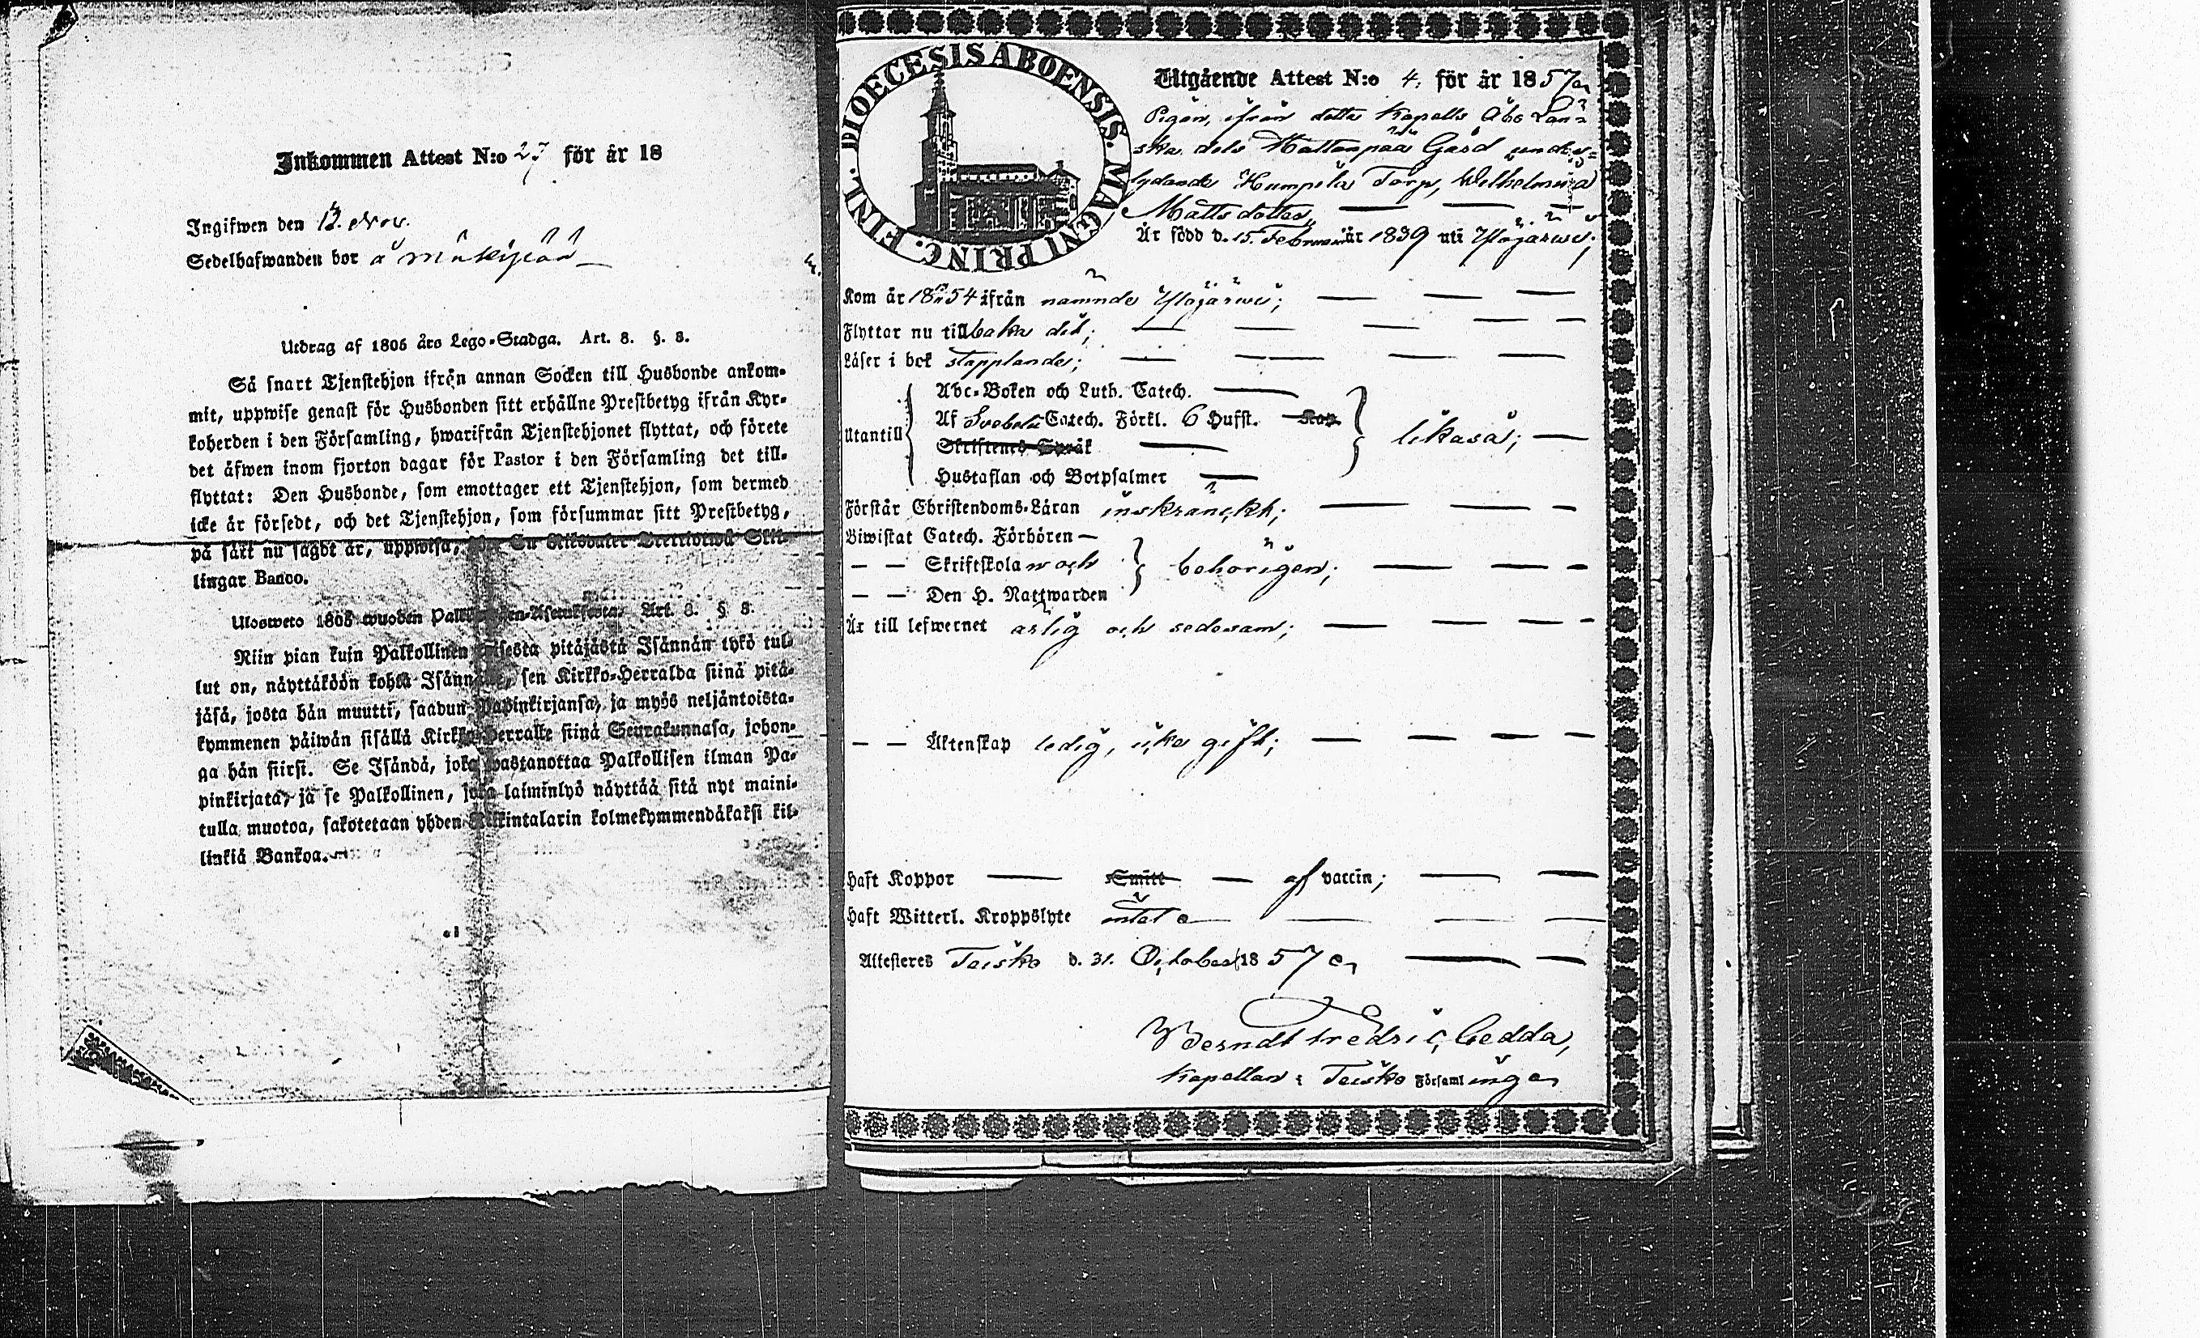 Inkommen Attest N:o 27 för år 18
Ingifwen den 12. Nov.
Sedelhafwanden bor å
Utdrag af 1805 års Lego-Stadga. Art. 8. §. 8.
Så snart Tjenstehjon ifrån annan Socken till Husbonde ankom-
mit, uppwise genast för Husbonden sitt erhållne Prestbetyg ifrån Kyr-
koherden i den Församling, hwarifrån Tjenstehjonet flyttat, och förete
det äfwen inom fjorton dagar för Pastor i den Församling det till-
flyttat: Den Husbonde, som emottager ett Tjenstehjon, som dermed
icke är försedt, och det Tjenstehjon, som försummar sitt Prestbetyg,
på sätt nu sagdt är, uppwisa, En Riksdaler Trettiotwå Skil-
lingar Banco.
Ulosweto 1805 wuoden Art. 8. § 8.
Niin pian kuin Palkollinen toisesta pitäjästä Isännän tykö tul-
lut on, näyttäköön kohta Isännälle, sen Kirkko-Herralda siinä pitä-
jäsä, josta hän muutti, saadun Papinkirjansa, ja myös neljäntoista-
kymmenen päiwän sisällä Kirkko-Herralle siinä Seurakunnasa, johon-
ga hän siirsi. Se Isändä, joka wastanottaa Palkollisen ilman Pa-
pinkirjata, ja se Palkollinen, joka laiminlyö näyttää sitä nyt maini-
tulla muotoa, sakotetaan yhden Riikintalarin kolmekymmendäkaksi kil-
linkiä Bankoa.
DIOECESIS ABOENSIS. MAGNI PRINC. FINL.
Utgående Attest N:o 4. för år 1857
Pigan, ifrån detta Kapells Åbo Län-
ska dels Mattanpää Gård under-
lydande Humpila Torp, Wilhelmina
Mattsdotter,
Är född d. 15. Februari år 1839 uti Ylöjärwi;
Kom år 1854 ifrån nämnde Ylöjärwi;
Flyttar nu tillbaka dit;
Läser i bok stapplande;
Utantill
Abc-Boken och Luth. Catech.
Af Svebelii Catech. Förkl. 6 Hufst. Kap.
Skriftenes Språk
Hustaflan och Botpsalmer
likaså;
Förstår Christendoms-Läran inskränckt;
Biwistat Catech. Förhören
— — Skriftskolan och
— — Den H. Nattwarden
behörigen;
Är till lefwernet ärlig och sedesam;
— — Äktenskap ledig, icke gift;
Haft Koppor Smitt af vaccin;
Haft Witterl. Kroppslyte intet
Attesteres Teisko d. 31. October 1857
Berndt Fredric Cedda,
Kapellan i Teisko Församlingen